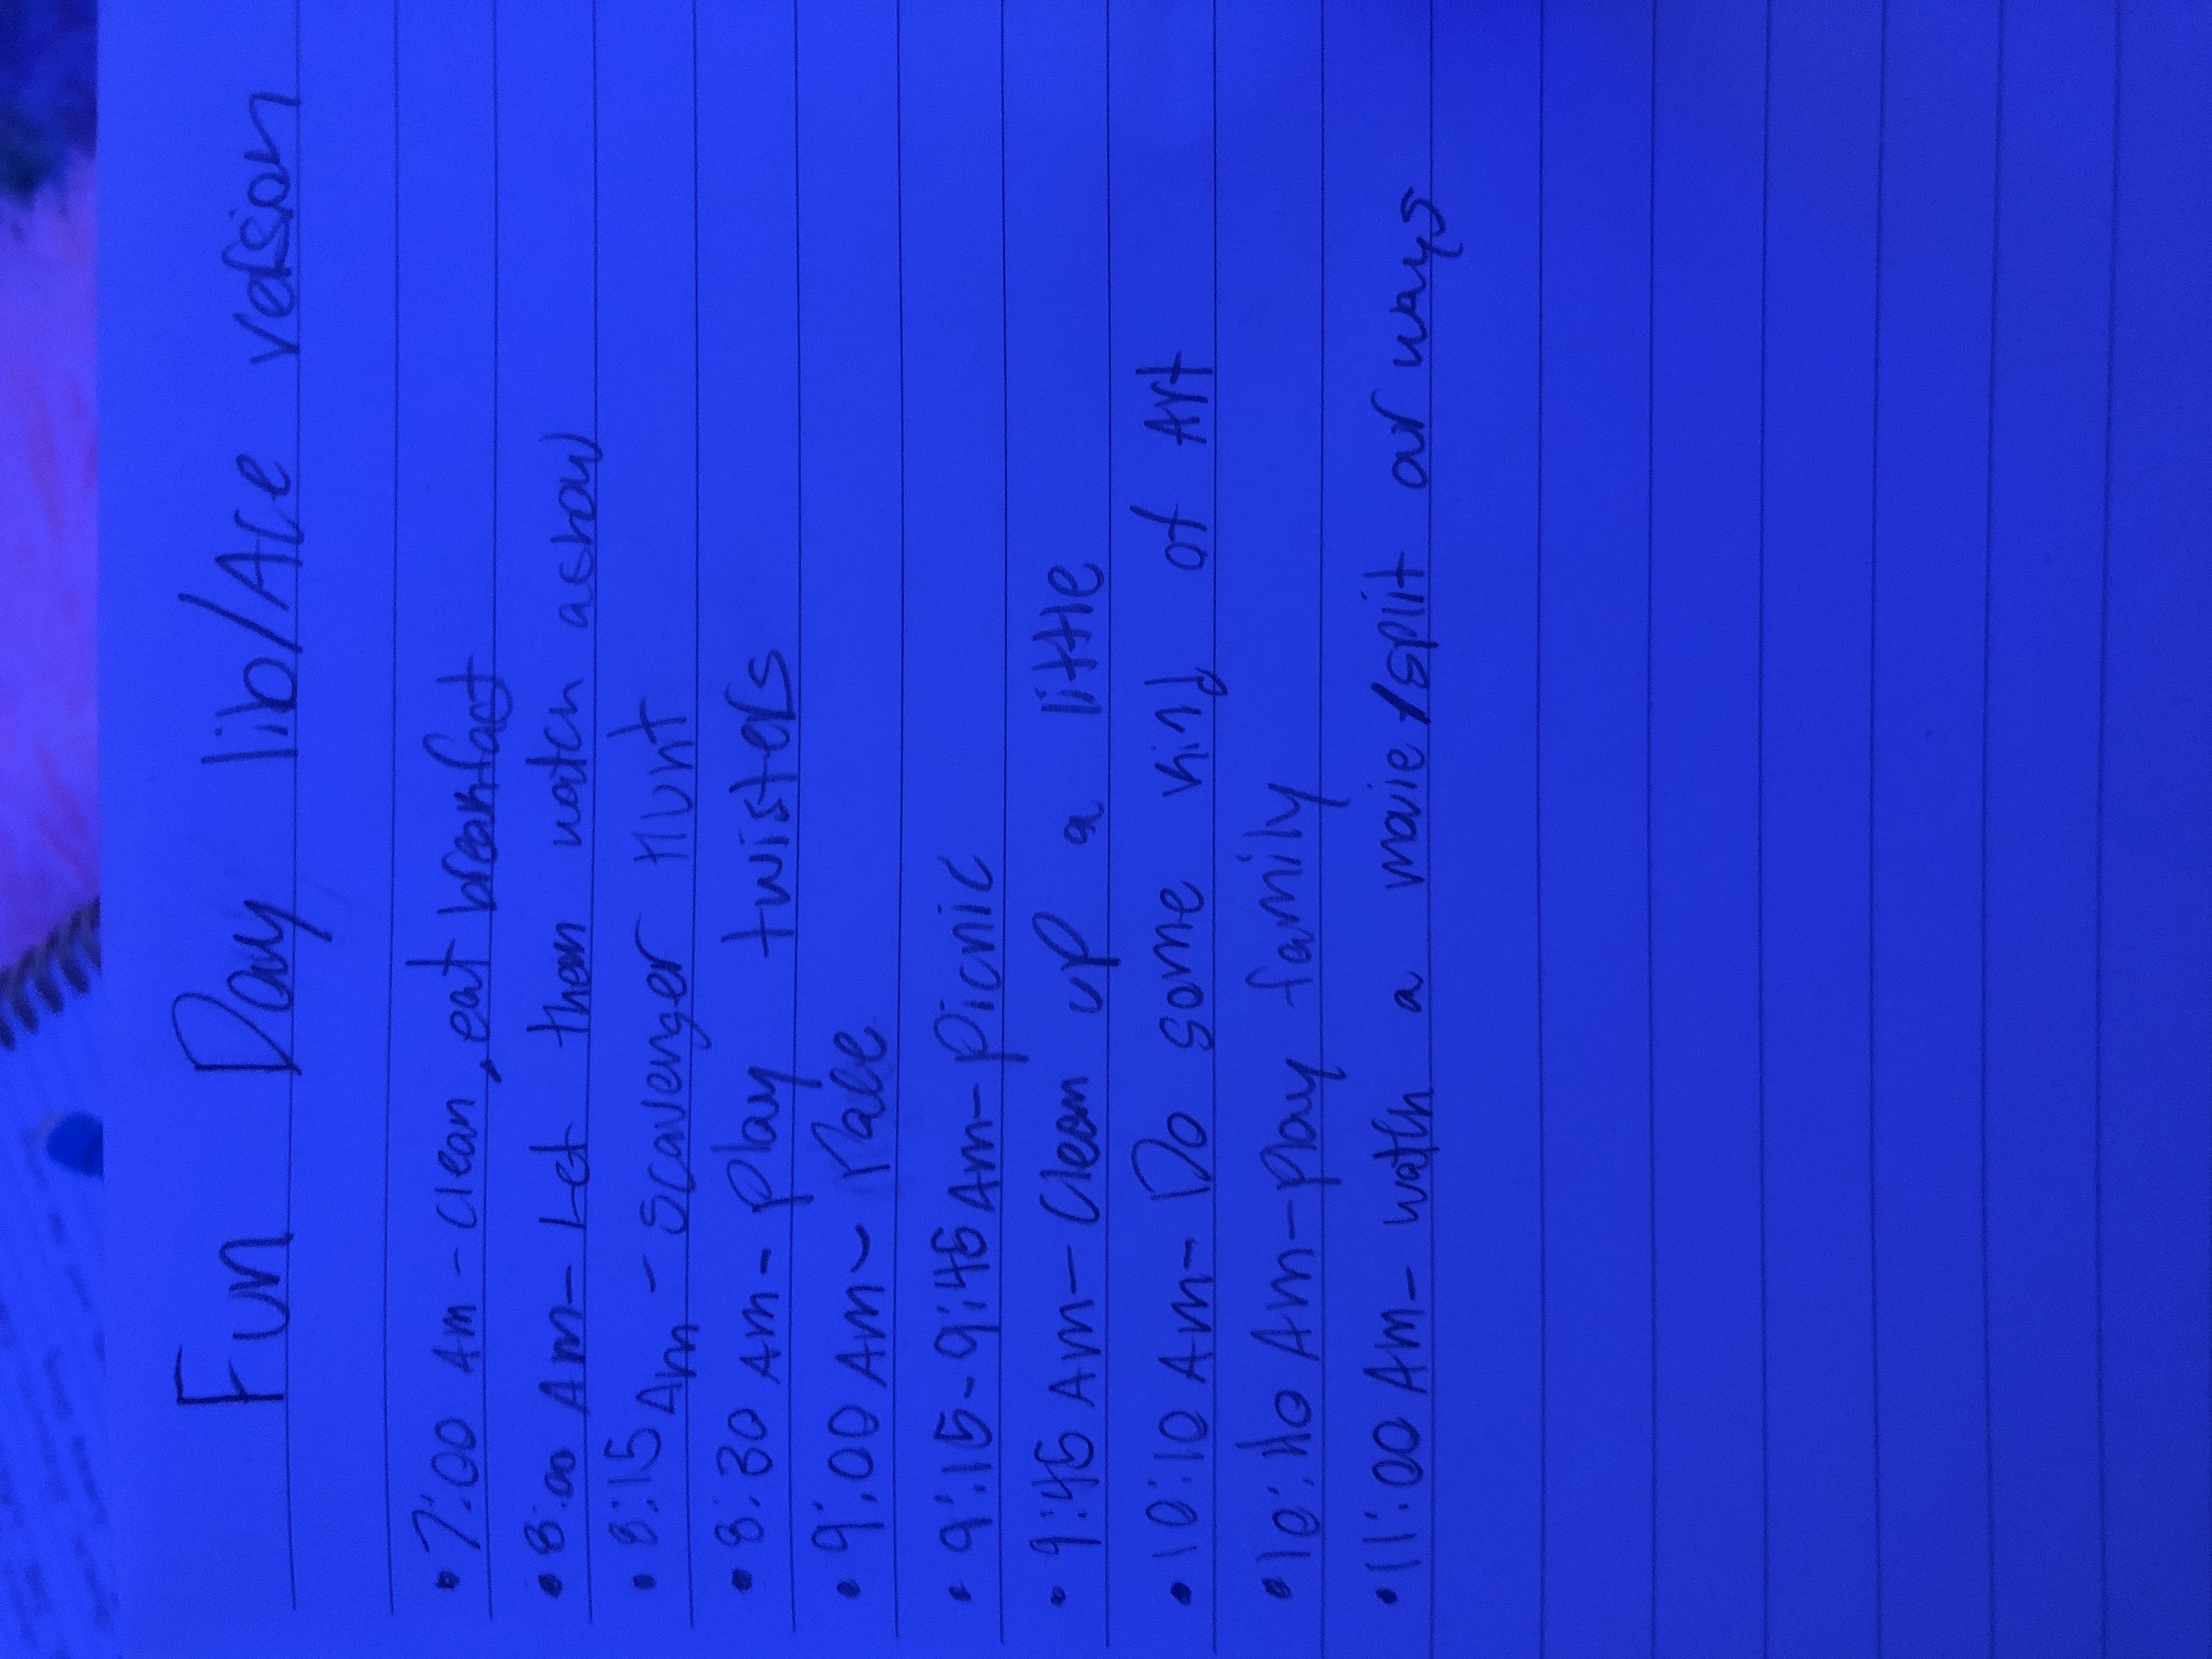 Fun Day lib/Ace version
• 7:00 Am - clean, eat breakfast
• 8:00 Am - Let them watch a show
• 8:15 Am - Scavenger Hunt
• 8:30 Am - Play twisters
• 9:00 Am -
• 9:15 - 9:45 Am - Picnic
• 9:45 Am - Clean up a little
• 10:10 Am - Do some kind of Art
• 10:40 Am - Play family
• 11:00 Am - wath a movie/split our ways